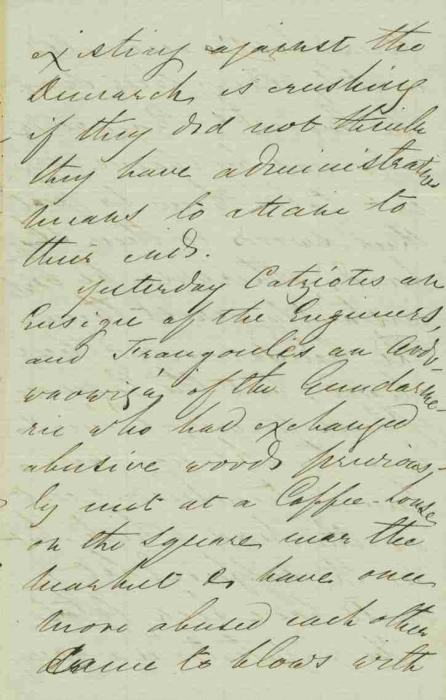 existing against the
Demarch, is crushing
if they did not think
they have administrative
means to attain to
their ends.
Yesterday Catziotis an
Ensign of the Engineers
and Frangoulis an
of the Gendarme-
rie who had exchanged
abusive words previous-
ly met at a Coffee-house
on the square near the
market & have once
more abused each other
came to blows with